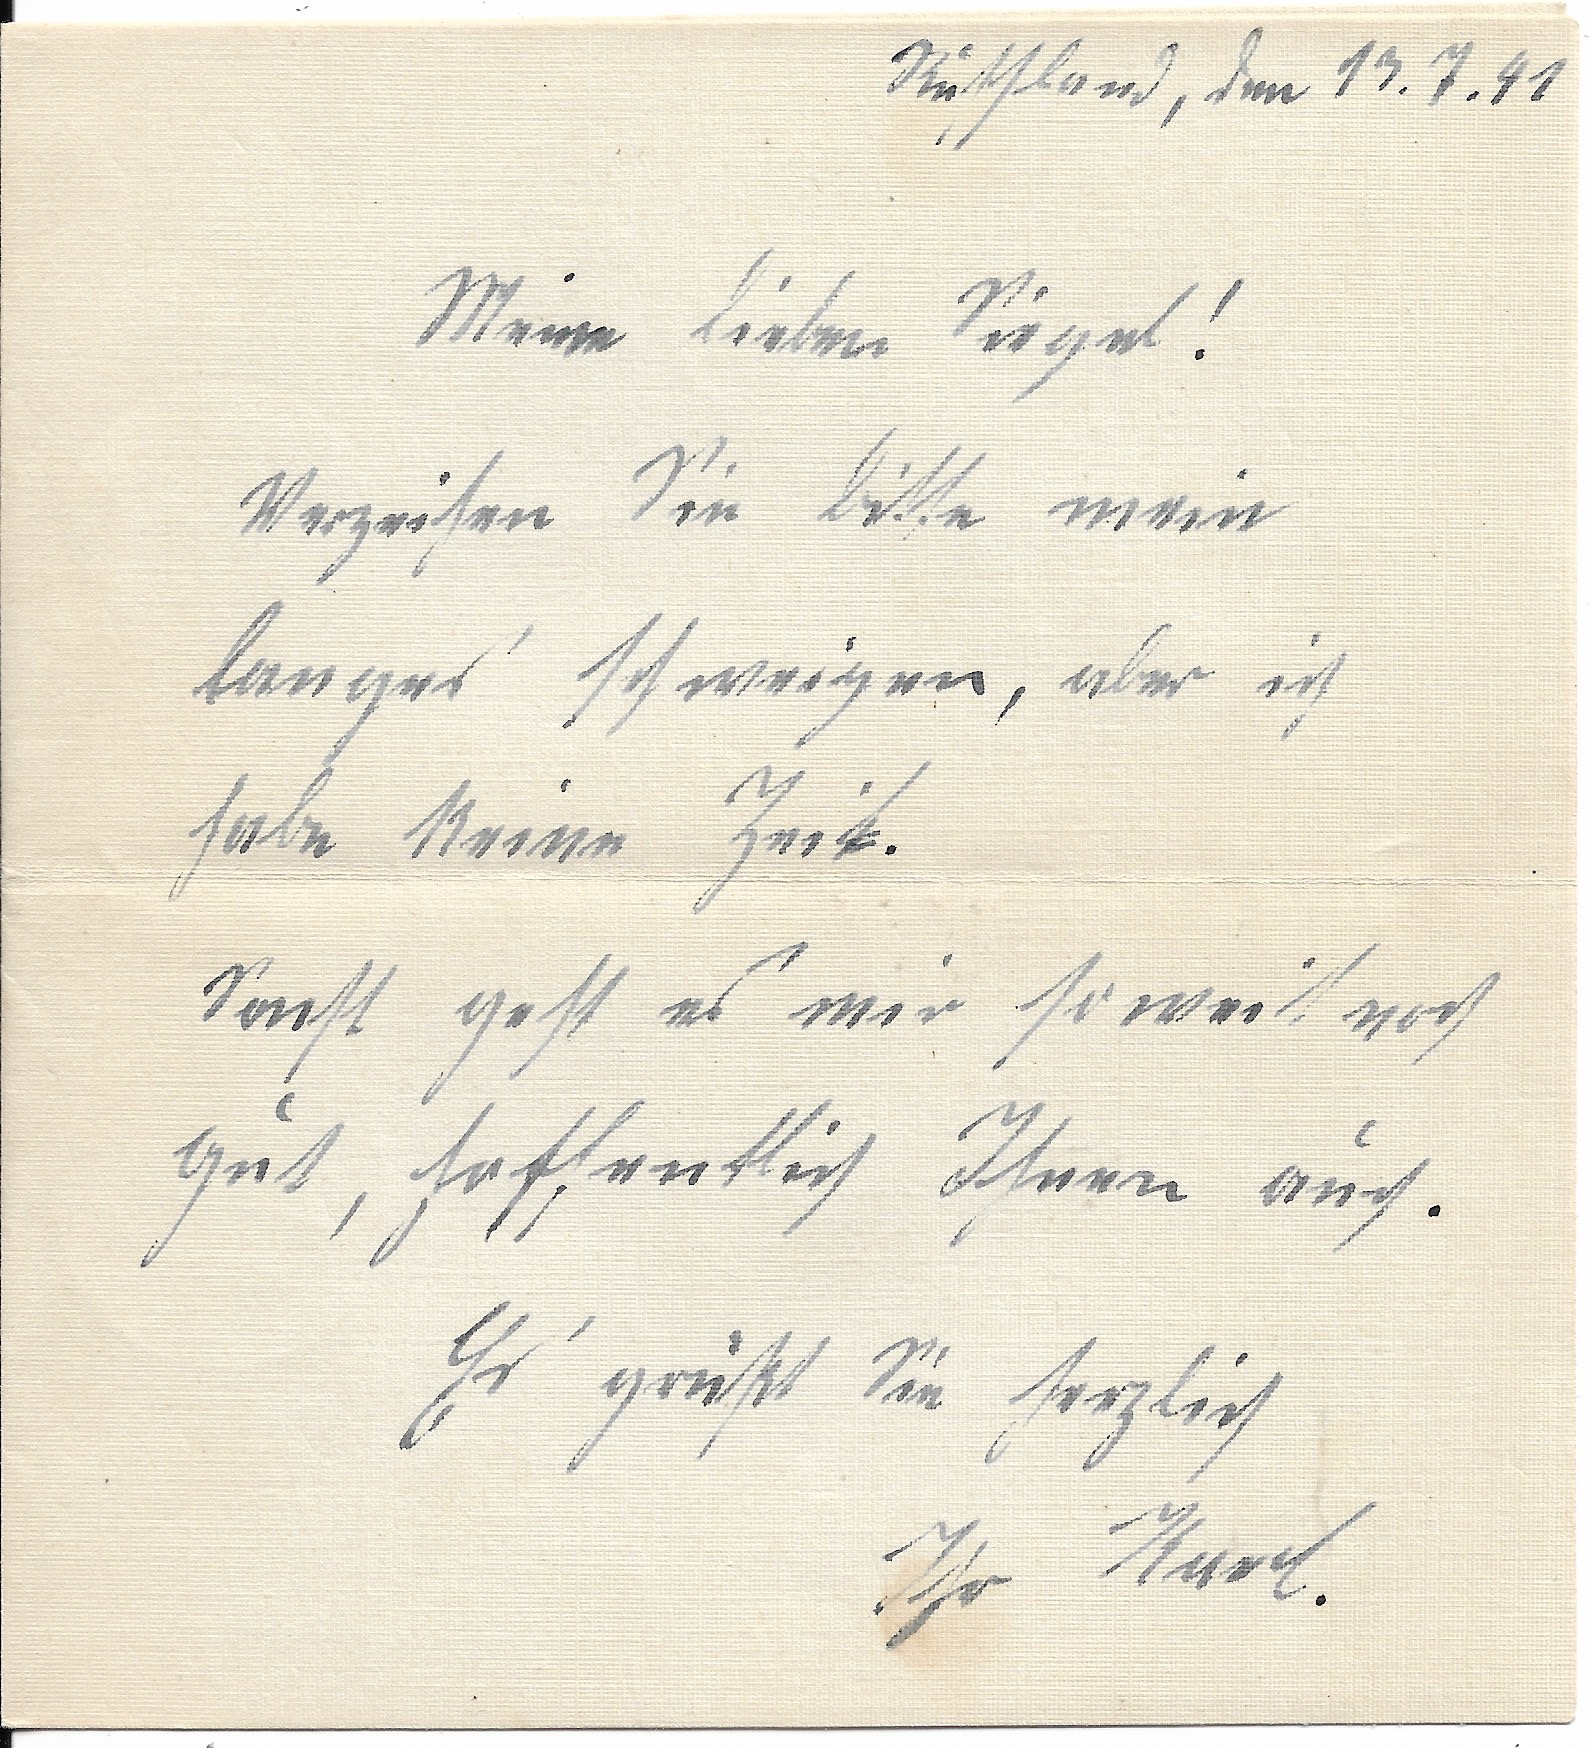 Rußland, den 13.7.41
Meine lieben Siegel!
Verzeihen Sie bitte mein
langes schweigen, aber ich
habe keine Zeit.
Sonst geht es mir soweit noch
gut, hoffentlich Ihnen auch.
Es grüßt Sie herzlich
Ihr